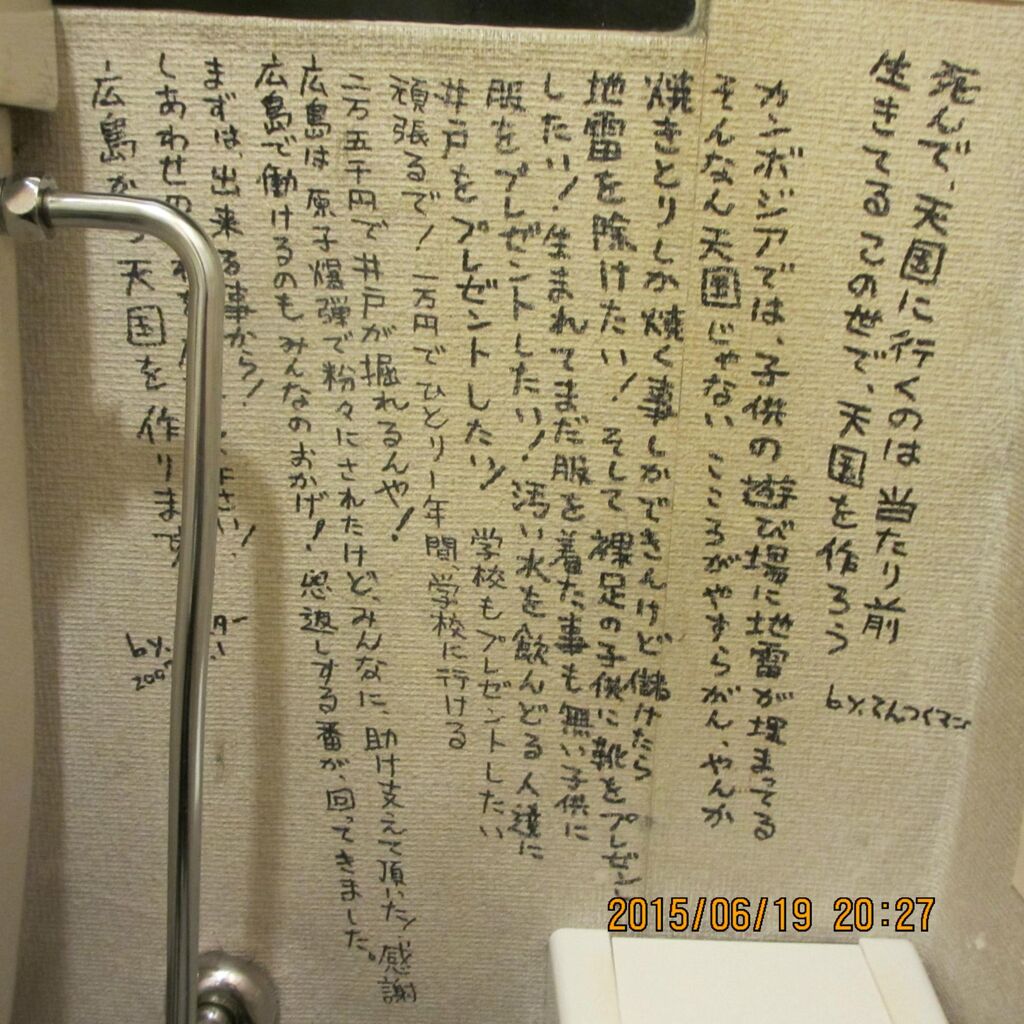 死んで、天国に行くのは当たり前
生きてるこの世で、天国を作ろう
by.てんつくマン
カンボジアでは、子供の遊び場に地雷が埋まってる
そんなん天国じゃない こころがやすらがん、やんか
焼きとりしか焼く事しかできんけど儲けたら
地雷を除けたい！そして裸足の子供に靴をプレゼン
したい！生まれてまだ服を着た事も無い子供に
服をプレゼントしたい！汚い水を飲んどる人達に
井戸をプレゼントしたい！ 学校もプレゼントしたい
頑張るで！一万円でひとり一年間、学校に行ける
二万五千円で井戸が掘れるんや！
広島は原子爆弾で粉々にされたけど、みんなに、助け支えて頂いた！感謝
広島で働けるのもみんなのおかげ！恩返しする番が、回ってきました。
まずは、出来る事から！
しあわせ
広島か 天国を作ります
by.
200
2015/06/19 20:27